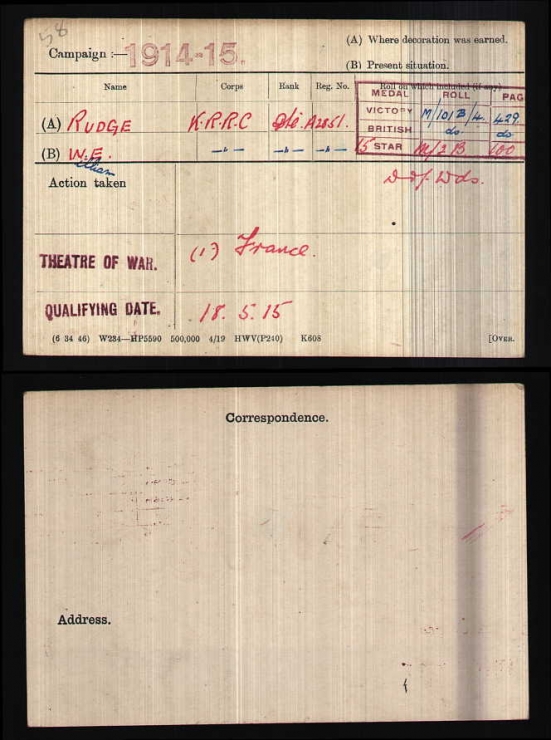 58
Campaign :— 1914-15.
(A) Where decoration was earned.
(B) Present situation.
Name Corps Rank Reg. No. Roll on which included (if any)
MEDAL ROLL PAG
(A) RUDGE K.R.R.C A2851.
VICTORY M/101B/4. 429
BRITISH do do
(B) W.E. —"— —"— —"—
15 STAR M/3 B 100
Action taken
D of Wds.
THEATRE OF WAR. (1) France.
QUALIFYING DATE. 18. 5. 15
(6 34 46) W234—HP5590 500,000 4/19 HWV(P240) K608 [OVER.
Correspondence.
Address.